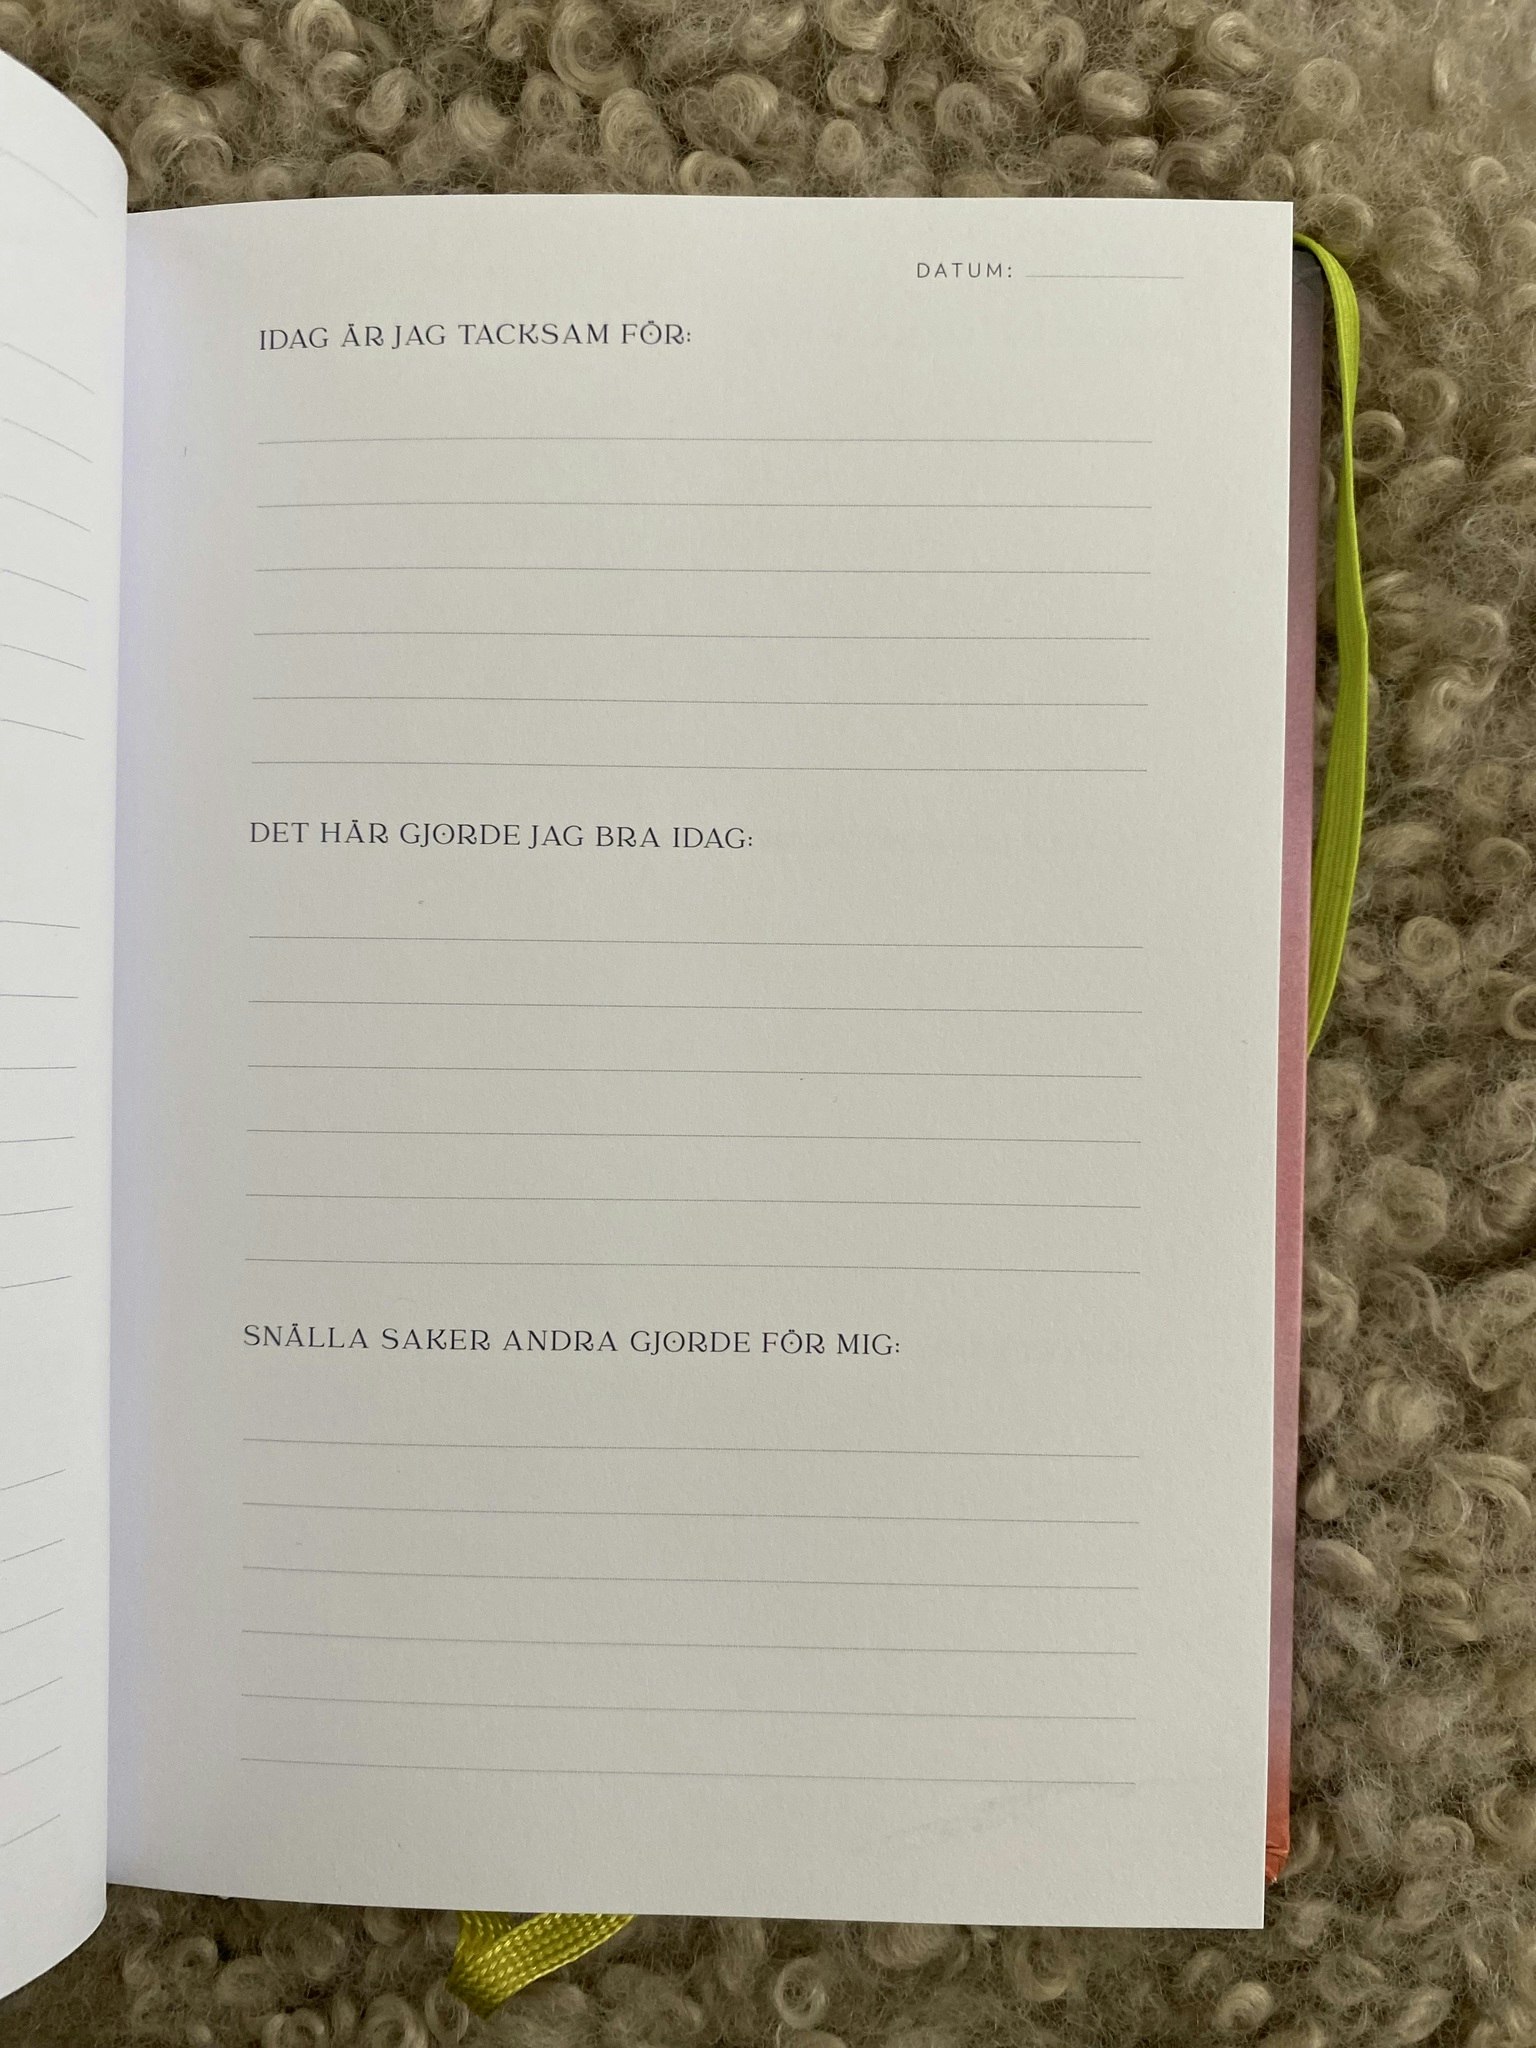 DATUM:
IDAG ÄR JAG TACKSAM FÖR:
DET HÄR GJORDE JAG BRA IDAG:
SNÄLLA SAKER ANDRA GJORDE FÖR MIG: